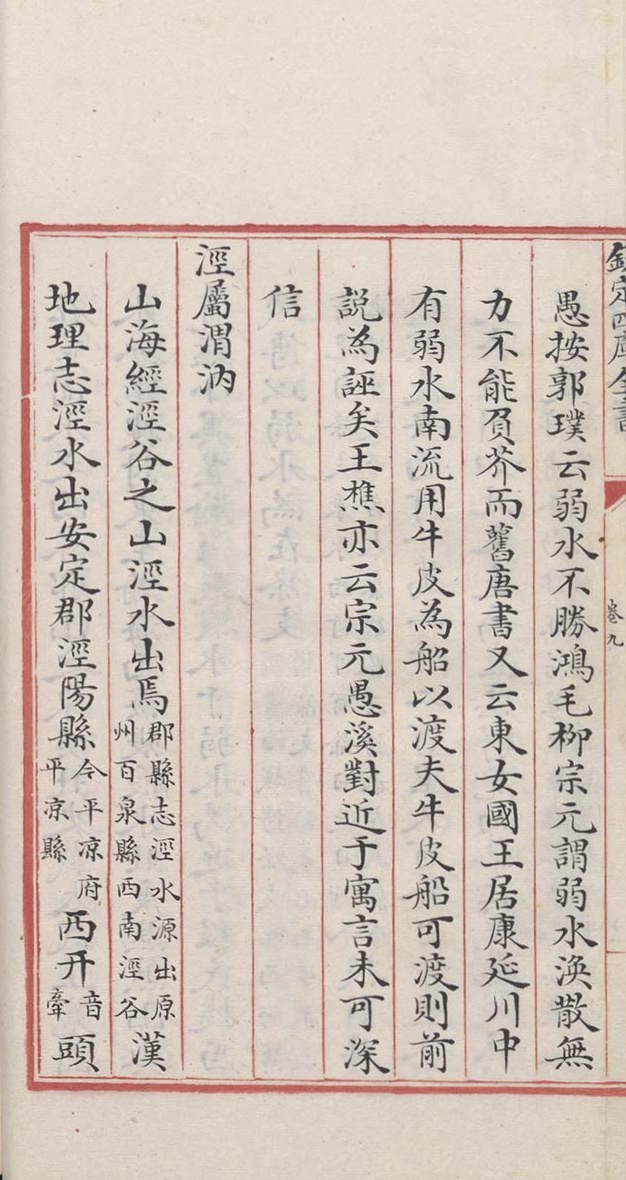 欽定四庫全書
卷九
愚按郭璞云弱水不勝鴻毛柳宗元謂弱水渙散無
力不能負芥而舊唐書又云東女國王居康延川中
有弱水南流用牛皮為船以渡夫牛皮船可渡則前
說為誣矣王樵亦云宗元愚溪對近于寓言未可深
信
涇屬渭汭
山海經涇谷之山涇水出焉郡縣志涇水源出原州百泉縣西南涇谷漢
地理志涇水出安定郡涇陽縣今平凉府平凉縣西幵音牽頭